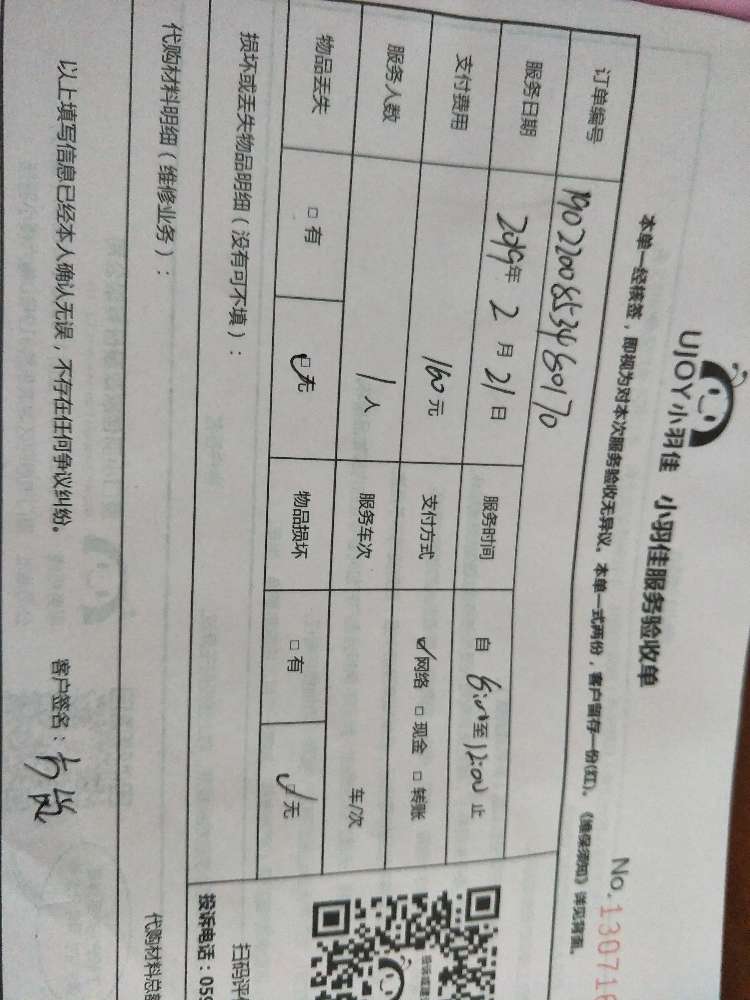 UJOY小羽佳 小羽佳服务验收单
No.130716
本单一经核签，即视为对本次服务验收无异议。本单一式两份，客户留存一份(红)。《维保须知》详见背面。
订单编号
服务日期 2019年 2 月 21 日 服务时间 自 8:00 至 12:00 止
支付费用 160 元 支付方式 ☑网络 □现金 □转账
服务人数 1 人 服务车次 车/次
物品丢失 □有 ☑无 物品损坏 □有 ☑无
损坏或丢失物品明细（没有可不填）：
扫码评
投诉电话：059
代购材料明细（维修业务）：
代购材料总
以上填写信息已经本人确认无误，不存在任何争议纠纷。 客户签名：